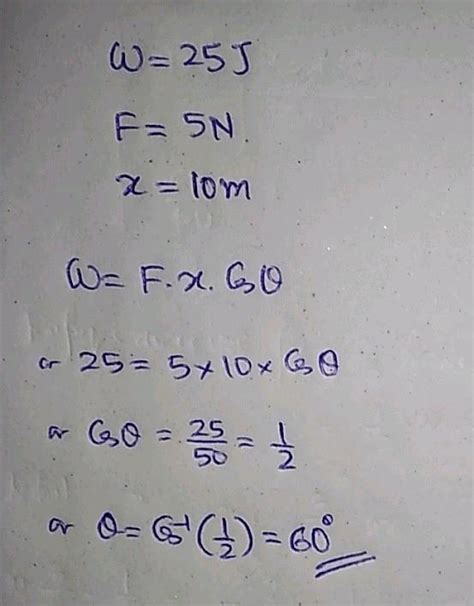 W = 25 J
F = 5N
x = 10m
W = F.x. Cosθ
or 25 = 5 × 10 × Cosθ
or Cosθ = 25/50 = 1/2
or θ = Cos⁻¹(1/2) = 60°